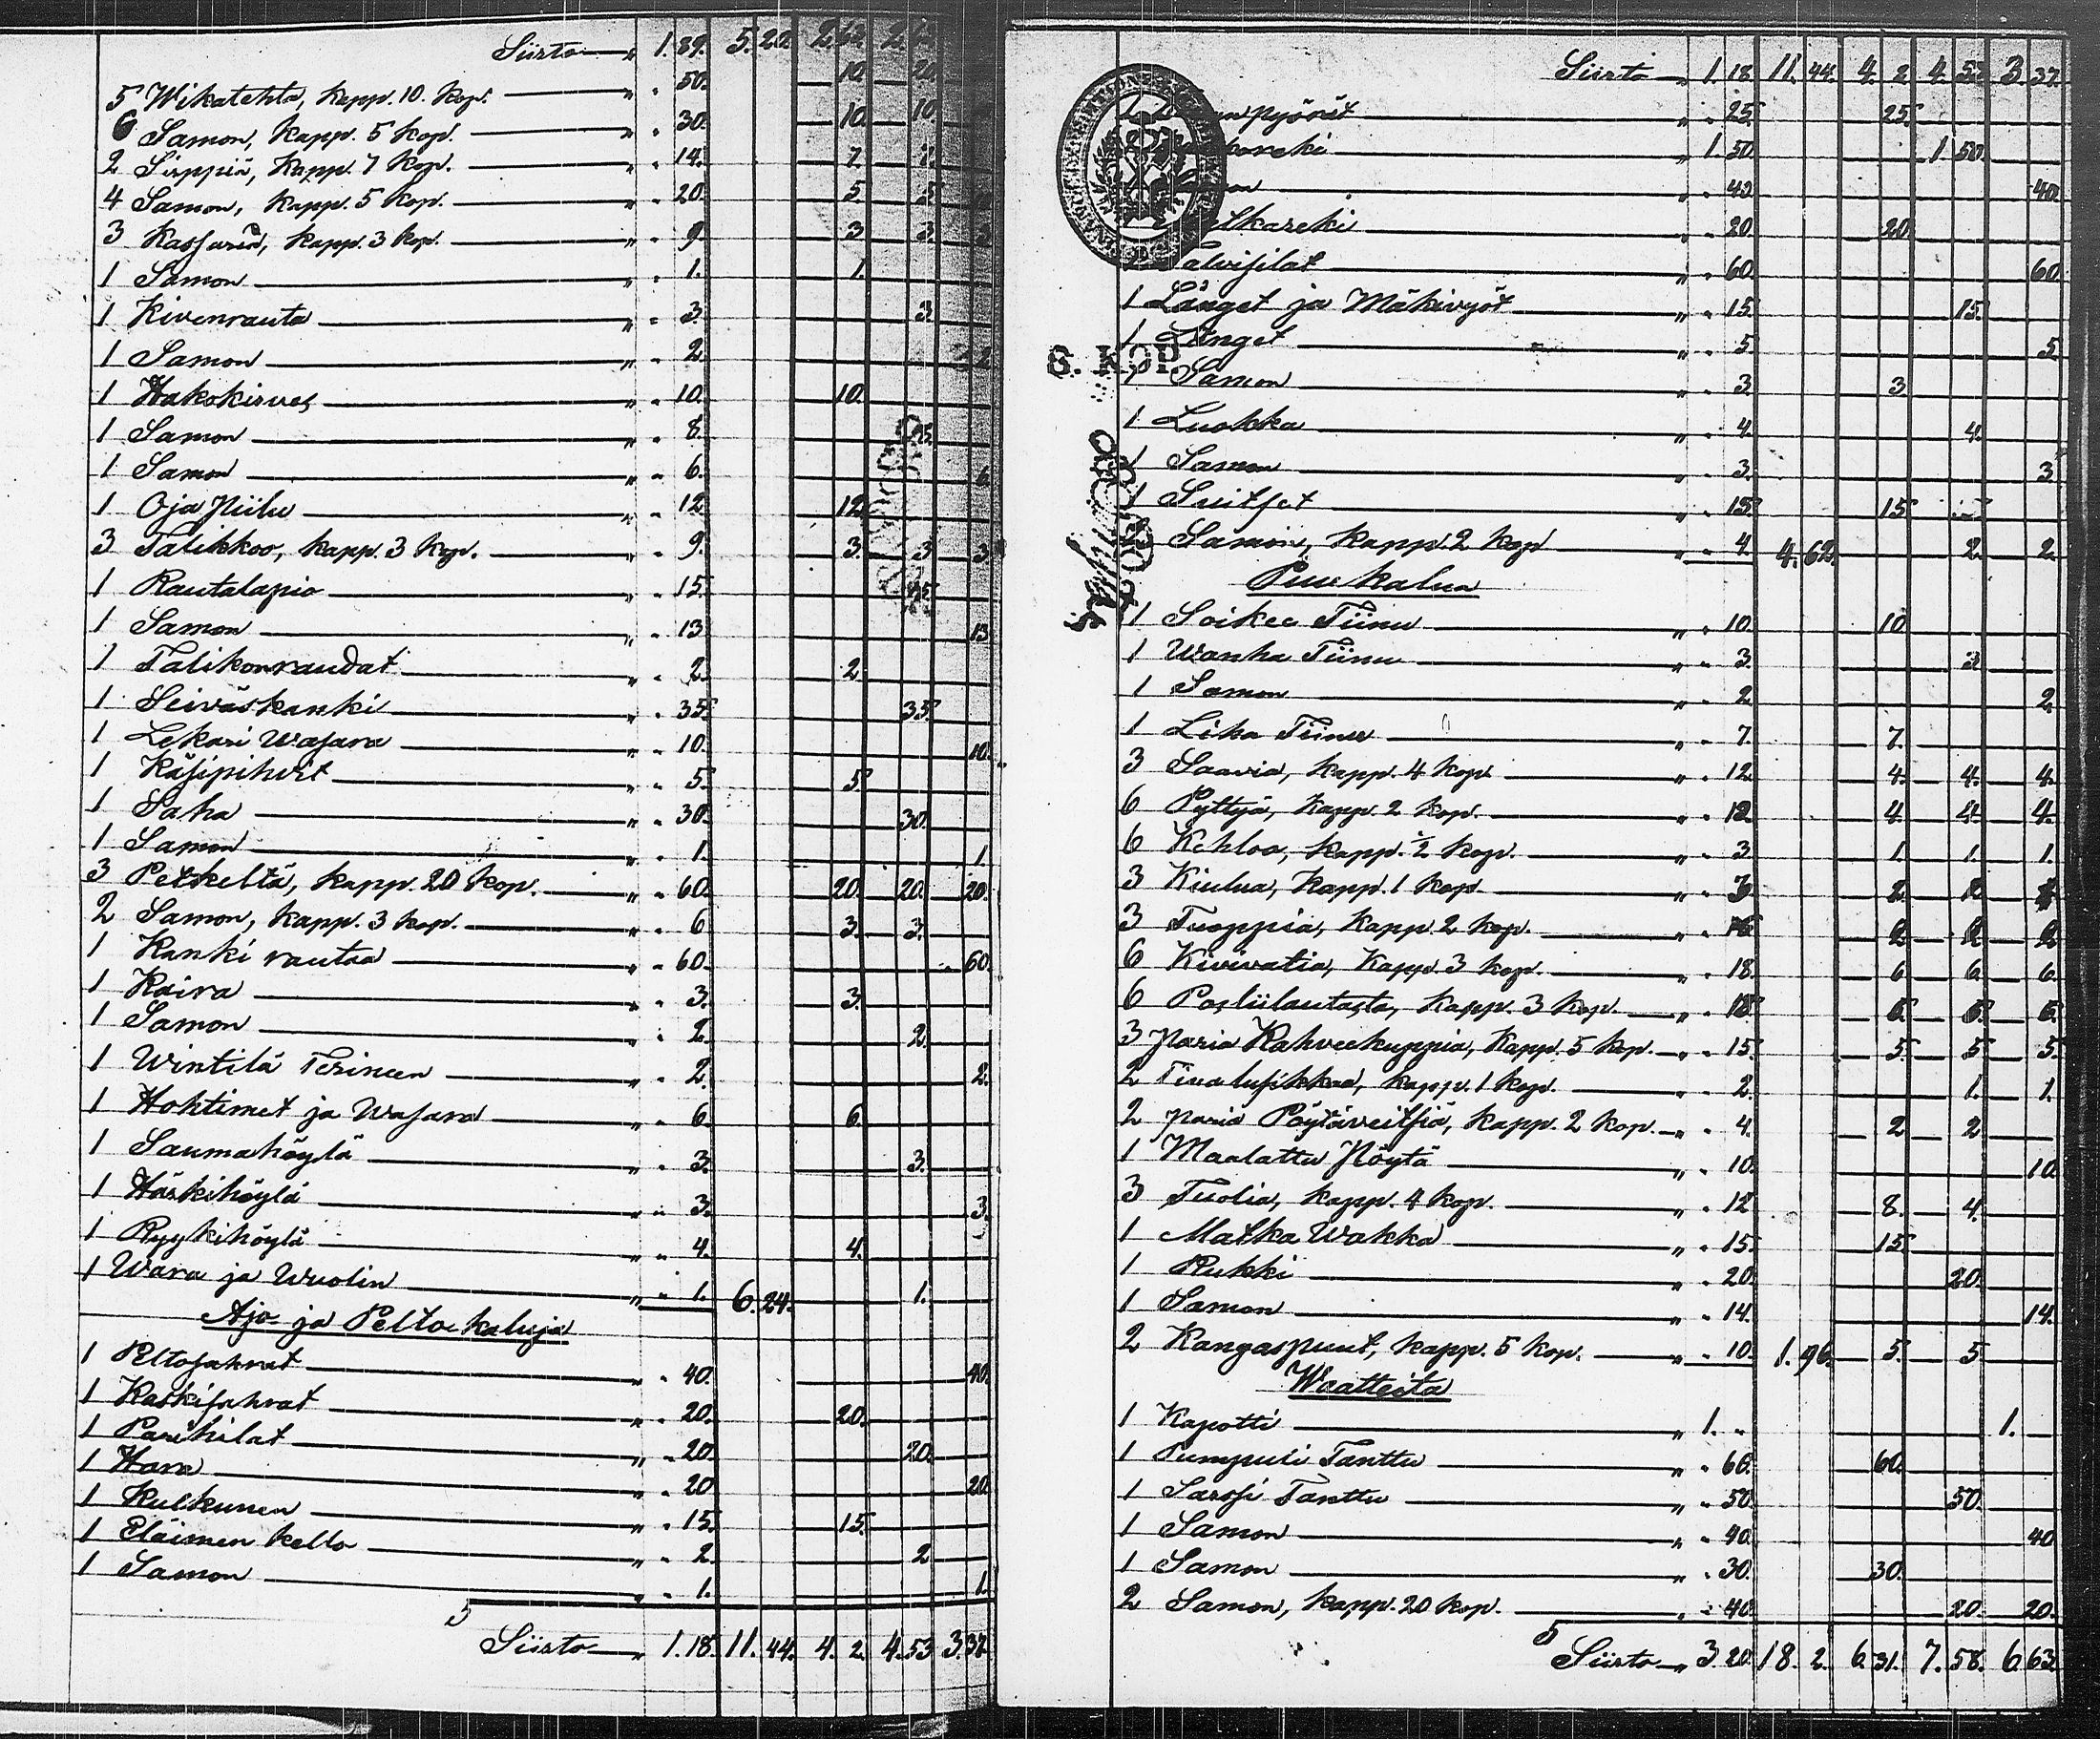 Siirto " 1. 89. 5. 20.
5 Wikatehta, kapp. 10. kop. " 50. 10. 20.
6 Samon, kapp. 5 kop. " 30. 10. 10.
2 Sirppiä, kapp. 7 kop. " 14. 7. 7.
4 Samon, kapp. 5 kop. " 20. 5. 5.
3 Kassaria, kapp. 3 kop. " 9. 3. 3. 3
1 Samon " 1. 1.
1 Kivenrauta " 3. 3.
1 Samon " 2. 2
1 Hakokirves " 10. 10.
1 Samon " 8.
1 Samon " 6. 6.
1 Oja Piilu " 12 12
3 Talikkoo, kapp. 3 kop. " 9. 3. 3 3
1 Rautalapio " 15. 15.
1 Samon " 13 13
1 Talikonraudat " 2. 2.
1 Seiväskanki " 35. 35.
1 Lekari Wasara " 10. 10.
1 Käsipihdit " 5. 5.
1 Saha " 30. 30.
1 Samon " 1. 1.
3 Petkeltä, kapp. 20 kop. " 60. 20. 20. 20.
2 Samon, kapp. 3 kop. " 6 3. 3.
1 Kanki rautaa " 60. 60.
1 Kaira " 3. 3.
1 Samon " 2. 2.
1 Wintilä Terineen " 2. 2.
1 Hohtimet ja Wasara " 6. 6.
1 Saumahöylä " 3. 3.
1 Härkihöylä " 3. 3.
1 Ryykihöylä " 4. 4.
1 Wara ja Wuolin " 1. 6. 24. 1.
Ajo ja Pelto kaluja
1 Peltosahrat " 40. 40.
1 Kaskisahrat " 20. 20.
1 Parihilat " 20. 20.
1 Hara " 20 20
1 Kulkunen " 15. 15.
1 Eläimen kello " 2. 2
1 Samon " 1. 1.
Siirto " 1. 18. 11. 44. 4. 2. 4. 53 3. 37.
Siirto " 1. 18 11. 44. 4. 2 4. 53 3. 37.
pyörät " 25. 25.
reki " 1. 50. 1 50.
" 40 40
kareki " 20 20.
Talvisilat " 60. 60
1 Länget ja Mäkivyöt " 15. 15.
1 Länget " 5. 5
1 Samon " 3. 3
1 Luokka " 4. 4.
1 Samon " 3. 3
1 Suitset " 15. 15
Samon, kapp. 2 kop " 4 4. 62. 2. 2
Puu kalua
1 Soikee Tiinu " 10. 10
1 Wanha Tiinu " 3. 3
1 Samon " 2 2
1 Liha Tiinu " 7. 7.
3 Saavia, kapp. 4 kop. " 12. 4. 4. 4.
6 Pyttyä, kapp. 2 kop. " 12 4. 4. 4.
6 Kehloa, kapp. ½ kop. " 3 1. 1. 1.
3 Kiulua, kapp. 1 kop. " 3
3 Tuoppia, kapp. 2 kop. " 2. 2. 2
6 Kivivatia, kapp. 3 kop. " 18. 6 6. 6.
6 Posliilautasta, kapp. 3 kop. " 18 6. 6. 6.
3 Paria Kahveekuppia, kapp. 5 kop. " 15. 5. 5 5
2 Tinalusikkaa, kapp. 1 kop. " 2. 1. 1.
2 paria Pöytäveitsiä, kapp. 2 kop. " 4. 2 2
1 Maalattu Pöytä " 10. 10
3 Tuolia, kapp. 4 kop. " 12 8. 4.
1 Matka Wakka " 15. 15
1 Rukki " 20. 20.
1 Samon " 14. 14.
2 Kangaspuut, kapp. 5 kop. " 10. 1. 96. 5. 5
Waatteita
1 Kapotti " 1. " 1.
1 Pumpuli Tanttu " 60. 60.
1 Sarssi Tanttu " 50. 50.
1 Samon " 40. 40
1 Samon " 30. 30.
2 Samon, kapp. 20 kop. " 40 20. 20.
Siirto " 3. 20 18. 2. 6. 31. 7. 58. 6. 63